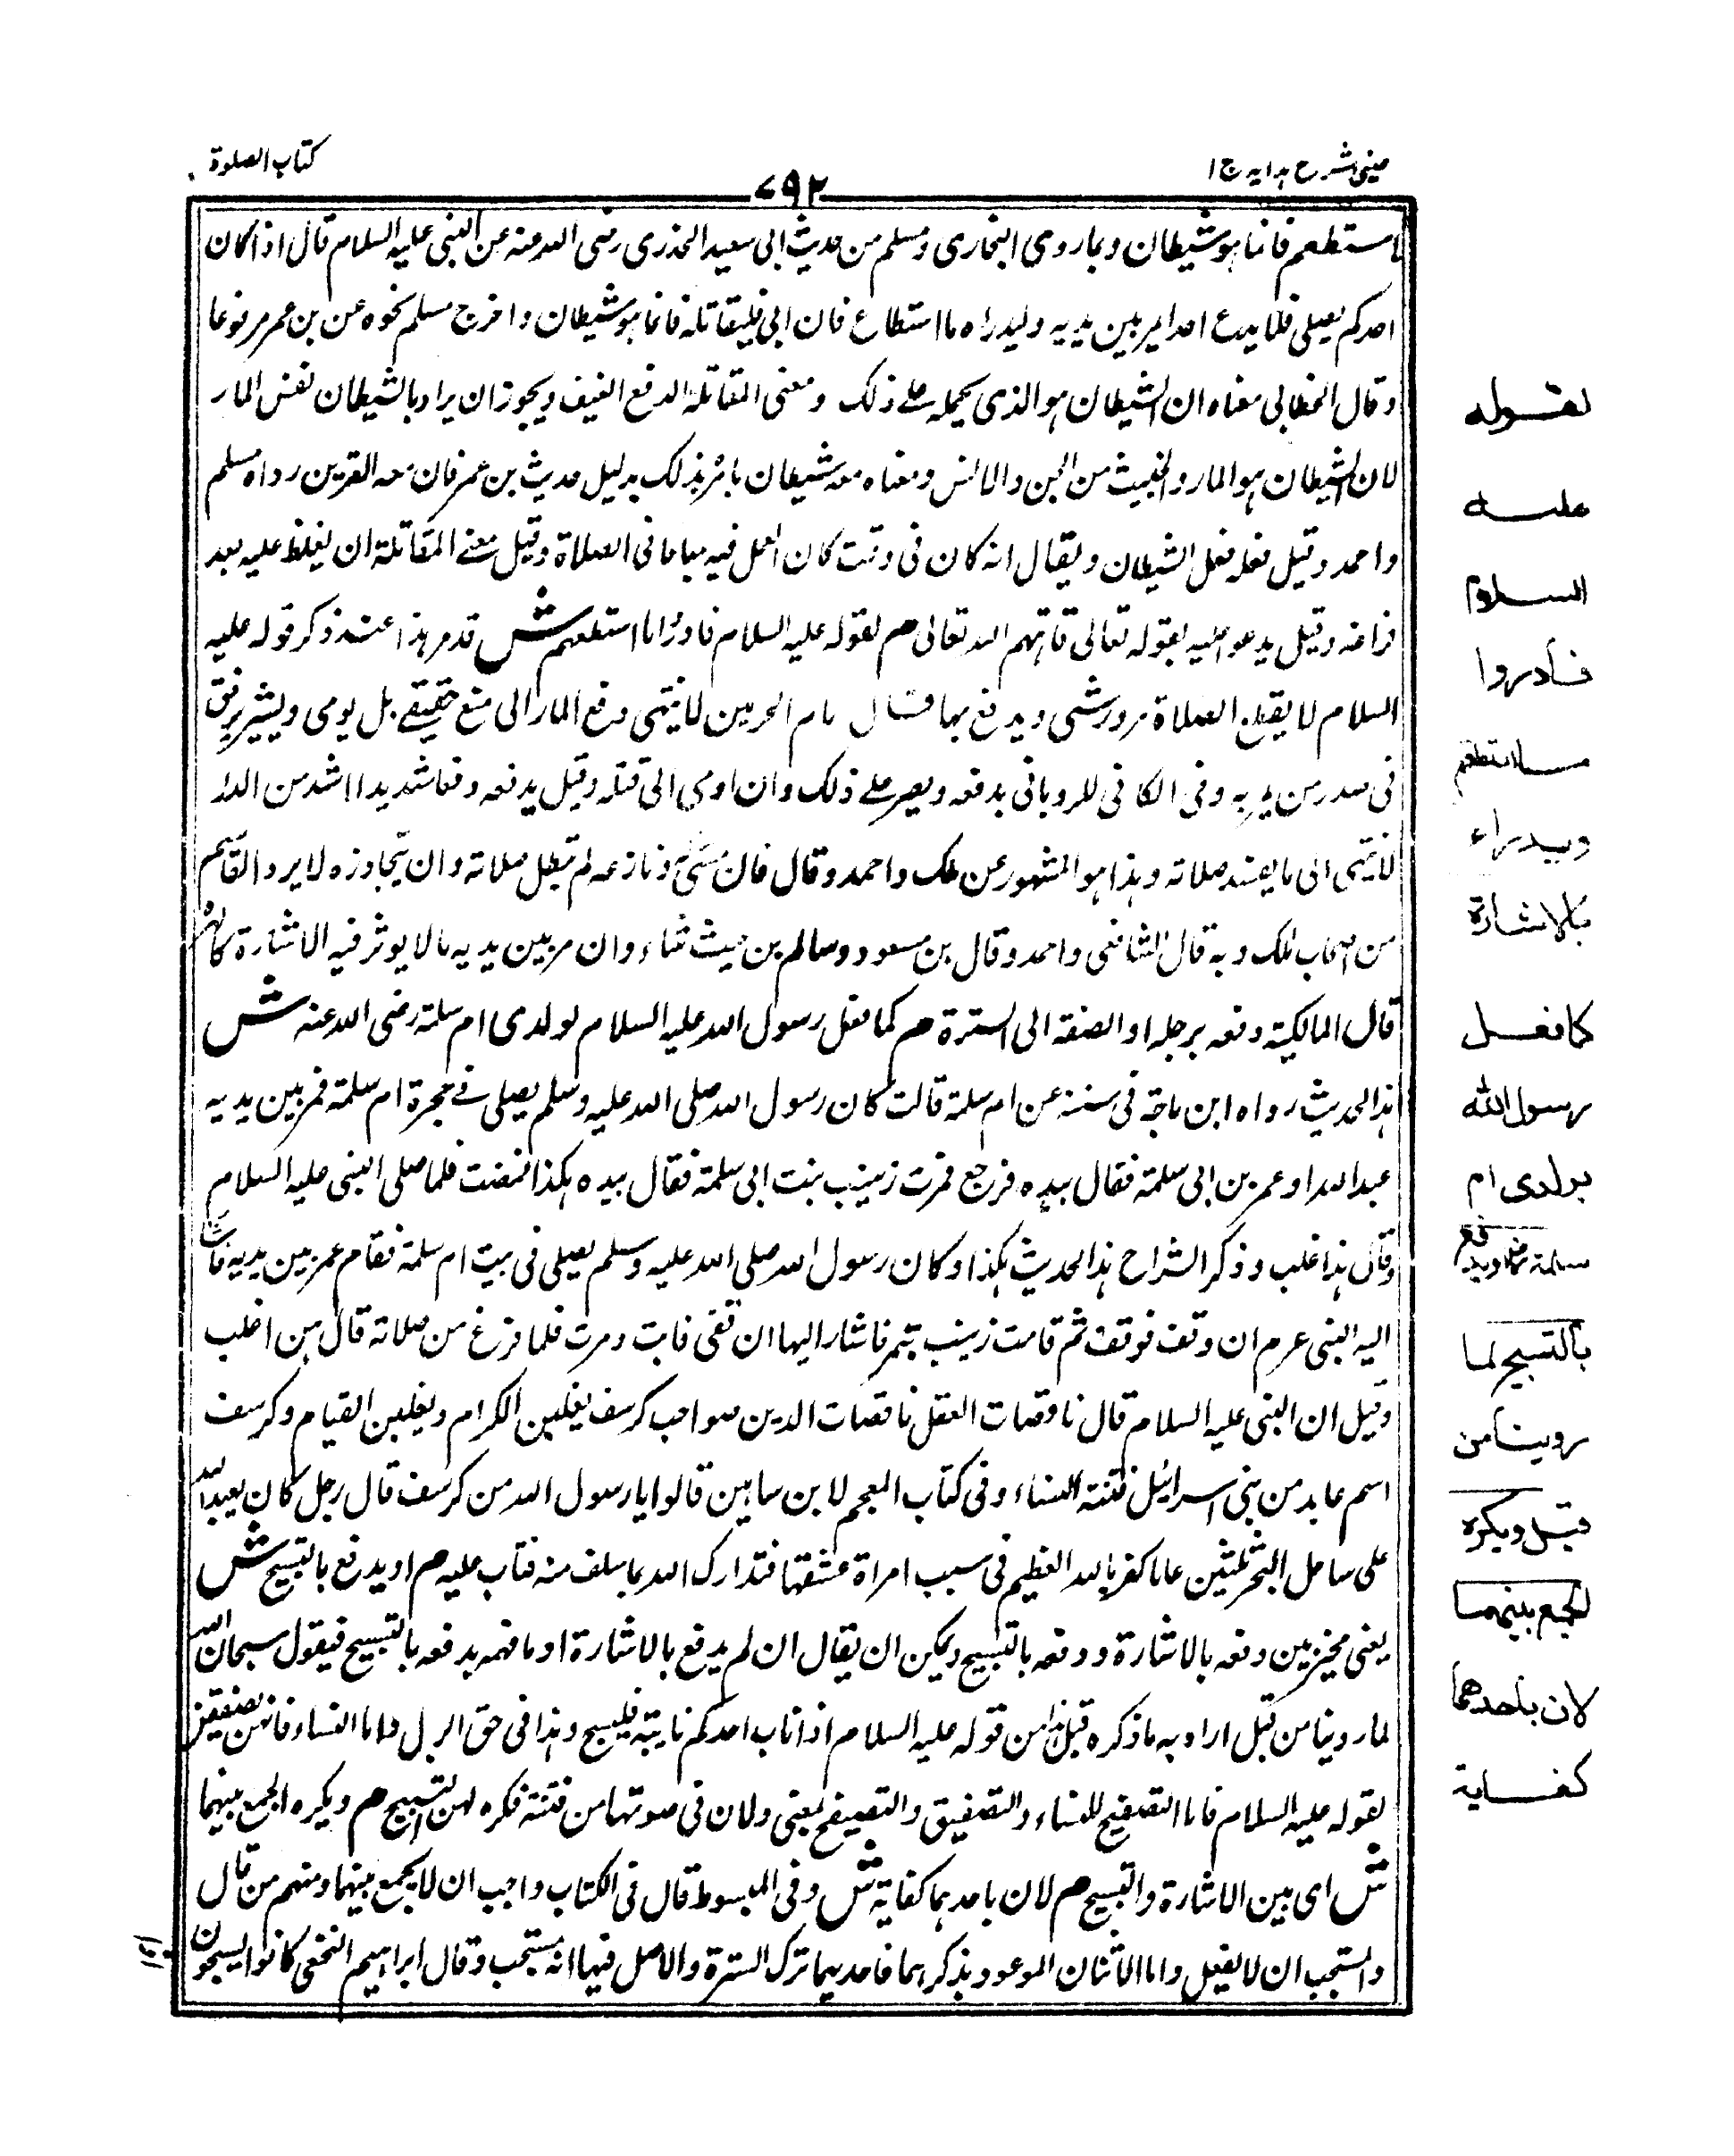 عینی شرح ہدایہ ج ۱
۷۹۲
کتاب الصلوة
ما استطعتم فانما هو شیطان وبما روی البخاری ومسلم من حدیث ابی سعید الخدری رضی الله عنه عن النبی علیه السلام قال اذا کان
احدکم یصلی فلا یدع احدا یمر بین یدیه ولیدراه ما استطاع فان ابی فلیقاتله فانما هو شیطان واخرج مسلم نحوه عن بن عمر مرفوعا
وقال الخطابی معناه ان الشیطان هو الذی یحمله علے ذلک ومعنی المقاتلة الدفع العنیف ویجوز ان یراد بالشیطان نفس المار
لان الشیطان هو المارد الخبیث من الجن والانس ومعناه معه شیطان یامره بذلک بدلیل حدیث بن عمر فان معه القرین رواه مسلم
واحمد وقیل فعله فعل الشیطان ویقال انه کان فی وقت کان العمل فیه مباحا فی الصلاة وقیل معنے المقاتلة ان یغلظ علیه بعد
فراغه وقیل یدعو علیه بقوله تعالی قاتلهم الله تعالی م لقوله علیه السلام فادرؤا ما استطعتم ش قد مر هذا عند ذکر قوله علیه
السلام لا یقطع الصلاة مرور شی ویدفع بها قال امام الحرمین لا ینتهی دفع المار الی منع حقیقے بل یومی ویشیر برفق
فی صدر من یمر به وفی الکافی للرویانی یدفعه ویصر علے ذلک وان اودی الی قتله وقیل یدفعه دفعا شدیدا اشد من الدرا
لا ینتهی الی ما یفسد صلاته وهذا هو المشهور عن ملک واحمد وقال فان مشی ونازعه لم تبطل صلاته وان یتجاوزه لا یرده القاسم
من اصحاب ملک وبه قال الشافعی واحمد وقال بن مسعود وسالم بن حیث شاء وان مر بین یدیه ما لا یوثر فیه الاشارة کالهر
قال المالکیة دفعه برجله او الصقه الی السترة م کما فعل رسول الله علیه السلام لولدی ام سلمة رضی الله عنه ش
هذا الحدیث رواه ابن ماجة فی سننه عن ام سلمة قالت کان رسول الله صلی الله علیه وسلم یصلی فے حجرة ام سلمة فمر بین یدیه
عبدالله او عمر بن ابی سلمة فقال بیده فرجع فمرت زینب بنت ابی سلمة فقال بیده هکذا فمضت فلما صلی النبی علیه السلام
وقال هذا غلب وذکر الشراح هذا الحدیث هکذا وکان رسول الله صلی الله علیه وسلم یصلی فی بیت ام سلمة فقام عمر بین یدیه فاشار
الیه النبی عرم ان وقف فوقف ثم قامت زینب تمر فاشار الیها ان قفی فابت ومرت فلما فرغ من صلاته قال هن اغلب
وقیل ان النبی علیه السلام قال ناقصات العقل ناقصات الدین صواحب کرسف یغلبن الکرام ویغلبن القیام وکرسف
اسم عابد من بنی اسرائیل فتنته النساء وفی کتاب المعجم لا بن ساهین قالوا یا رسول الله من کرسف قال رجل کان یعبد الله
علی ساحل البحر ثلثین عاما کفر بالله العظیم فی سبب امراة عشقها فتدارک الله بما سلف منه فتاب علیه م او یدفع بالتسبیح ش
یعنی مخیر بین دفعه بالاشارة ودفعه بالتسبیح ویمکن ان یقال ان لم یدفع بالاشارة او ما فهمه یدفعه بالتسبیح فیقول سبحان الله
لما روینا من قبل اراد به ما ذکره قبل هذا من قوله علیه السلام اذا ناب احدکم نایبة فلیسبح وهذا فی حق الرجل واما النساء فانهن یصفقن
لقوله علیه السلام فاما التصفیح للنساء والتصفیق والتصفیح بمعنی ولان فی صوتها من فتنة فکره لهن التسبیح م ویکره الجمع بینهما
ش ای بین الاشارة والتسبیح م لان باحدهما کفایة ش وفی المبسوط قال فی الکتاب واجب ان لا یجمع بینهما ومنهم من قال
والمستحب ان لا یفعل واما الاثنان الموعود بذکرهما فاحدیهما ترک السترة والاصل فیها انه مستحب وقال ابراهیم النخعی کانوا یستحبون
لقوله
علیه
السلام
فادروا
ما استطعتم
ویدراء
بالاشارة
کما فعل
رسول الله
بولدی ام
سلمة رض او یدفع
بالتسبیح لما
روینا من
قبل ویکره
الجمع بینهما
لان باحدهما
کفایة